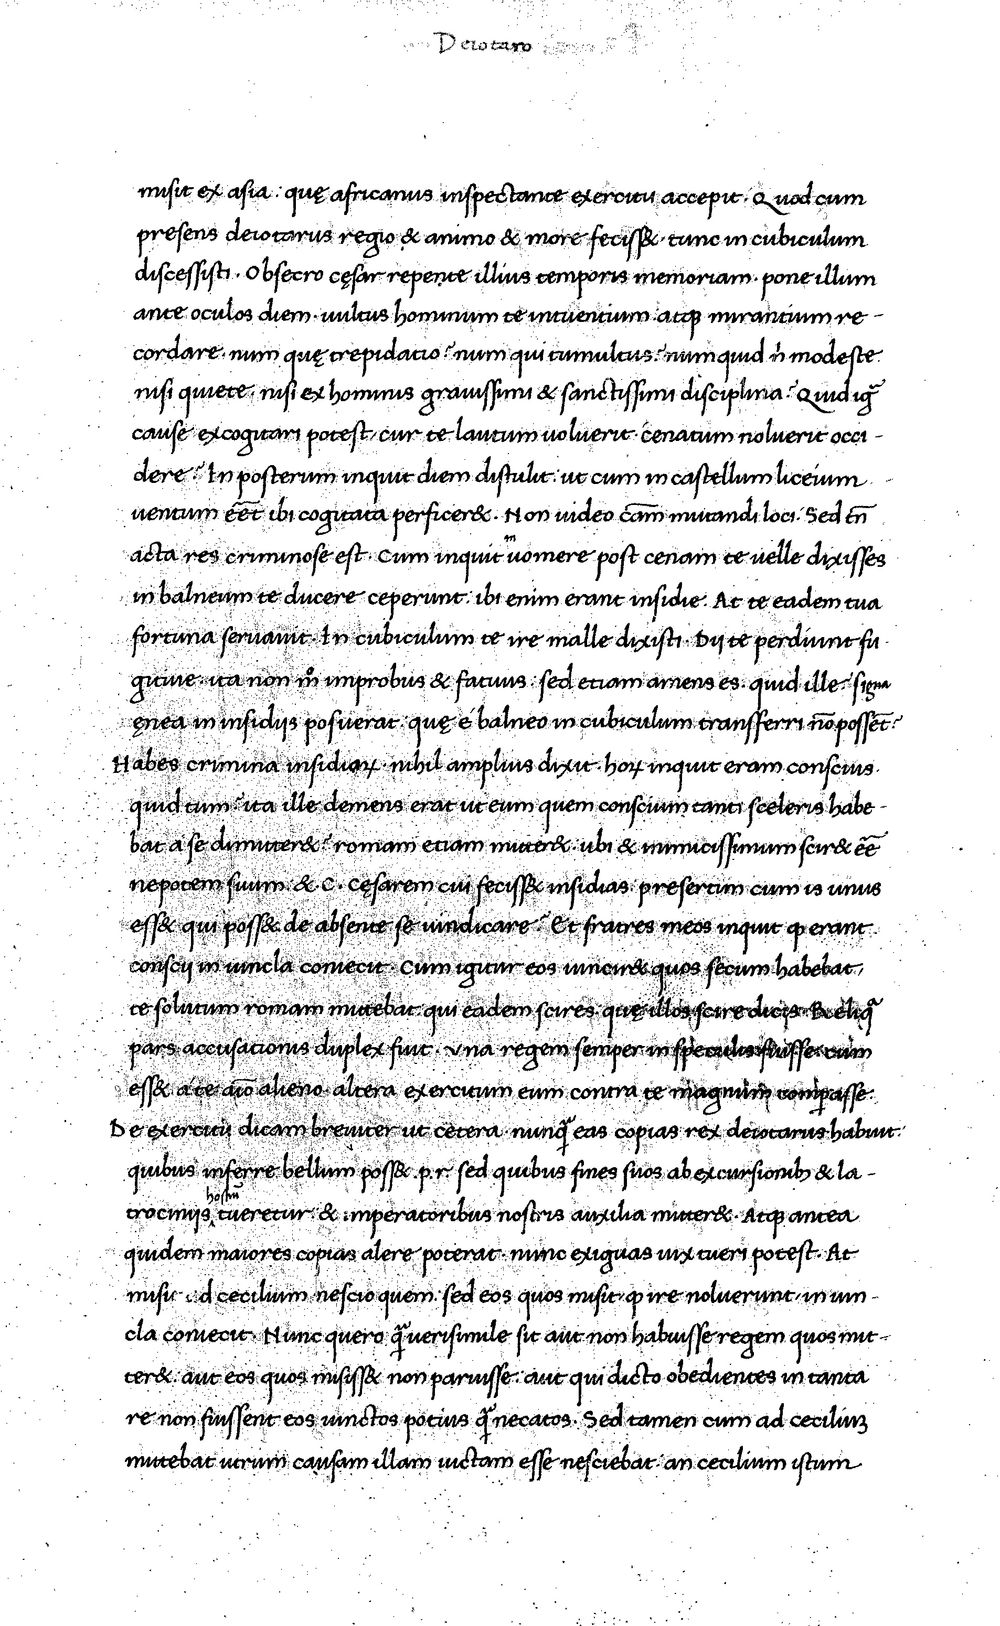 Deiotaro
misit ex asia · quę africanus inspectante exercitu accepit · Quod cum
presens deiotarus regio & animo & more feciss& · tunc in cubiculum
discessisti · Obsecro cęsar repente illius temporis memoriam · pone illum
ante oculos diem · uultus hominum te intuentium atq; mirantium re-
cordare · num quę trepidatio? num qui tumultus? numquid ñ modeste
nisi quiete · nisi ex hominis grauissimi & sanctissimi disciplina? Quid ig̃
cause excogitari potest, cur te lautum uoluerit · cenatum noluerit occi-
dere? In posterum inquit diem distulit · ut cum in castellum liceium
uentum ēēt ibi cogitata perficer& · Non uideo cām mutandi loci · Sed tñ
acta res criminose est · Cum inquit uomere post cenam te uelle dixisses
in balneum te ducere ceperunt · ibi enim erant insidie · At te eadem tua
fortuna seruauit · In cubiculum te ire malle dixisti · Dij te perdiunt fu
gitiue · ita non mͦ improbus & fatuus · sed etiam amens es · quid ille? signa
ęnea in insidijs posuerat · quę e balneo in cubiculum transferri nō possēt?
Habes crimina insidiaꝝ · nihil amplius dixit · hoꝝ inquit eram conscius ·
quid tum? ita ille demens erat ut eum quem conscium tanti sceleris habe-
bat a se dimitter&? romam etiam mitter& · ubi & inimicissimum scir& ēē
nepotem suum · & C · Cęsarem cui feciss& insidias · presertim cum is unus
ess& qui poss& de absente se uindicare? Et fratres meos inquit ꝙ erant
conscij in uincla coniecit · Cum igitur eos uincir& quos secum habebat,
te solutum romam mittebat · qui eadem scires · quę illos scire dicis · Reliq̃
pars accusationis duplex fuit · una regem semper in speculis fuisse · cum
ess& a te aīo alieno · altera exercitum eum contra te magnum comparasse ·
De exercitu dicam breuiter ut cetera · nunq̃ eas copias rex deiotarus habuit ·
quibus inferre bellum poss& · p. r · sed quibus fines suos ab excursionibꝫ & la-
hostiũ
trocinijs tueretur · & imperatoribus nostris auxilia mitter& · Atq; antea
quidem maiores copias alere poterat · nunc exiguas uix tueri potest · At
misit ad cecilium nescio quem · sed eos quos misit, ꝙ ire noluerunt, in uin-
cla coniecit · Nunc quero q̃ uerisimile sit aut non habuisse regem quos mit-
ter& · aut eos quos misiss& non paruisse · aut qui dicto obedientes in tanta
re non fuissent eos uinctos potius q̃ necatos · Sed tamen cum ad ceciliuꝫ
mittebat utrum causam illam uictam esse nesciebat · an cecilium istum